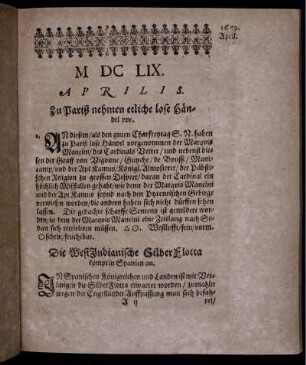 1659.
April.
M DC LIX.
APRILIS.
Zu Pariß nehmen etliche lose Hän-
del vor.
AN dißen/ als den guten Charfreytag S. N. haben
zu Pariß lose Händel vorgenommen der Marquis
Mancini/ des Cardinals Vetter/ und nebenst die-
sen der Graff von Guyche/ de
camp/ und der Apt Kamus/ Königl. der Päbsti-
schen Religion zu grossen Despect/ davon der Cardinal ein
höchlich Mißfallen gehabt/ wie denn der Marquis Mancini
und der Apt Kamus seynd nach den Pyrenischen Gebirge
verwiesen worden/ die andern haben sich nicht dürffen sehen
lassen. Die gedachte scharffe Sentenz ist gemildert wor-
den/ in dem der Marquis Mancini eine Zeitlang nach
den sich retiriren müssen. △☉. Westlufft/ fein/ worm-
☉schein/ feuchebar.
Die WestIndianische Silber Flotta
kömpt in Spanien an.
IN Spanischen Königreichen und Landen ist mit Ver-
langen die Silber Flotta erwartet worden/ zumahln
wegen der Engelländer Auffpassung man sich besoh-
A ij ret/